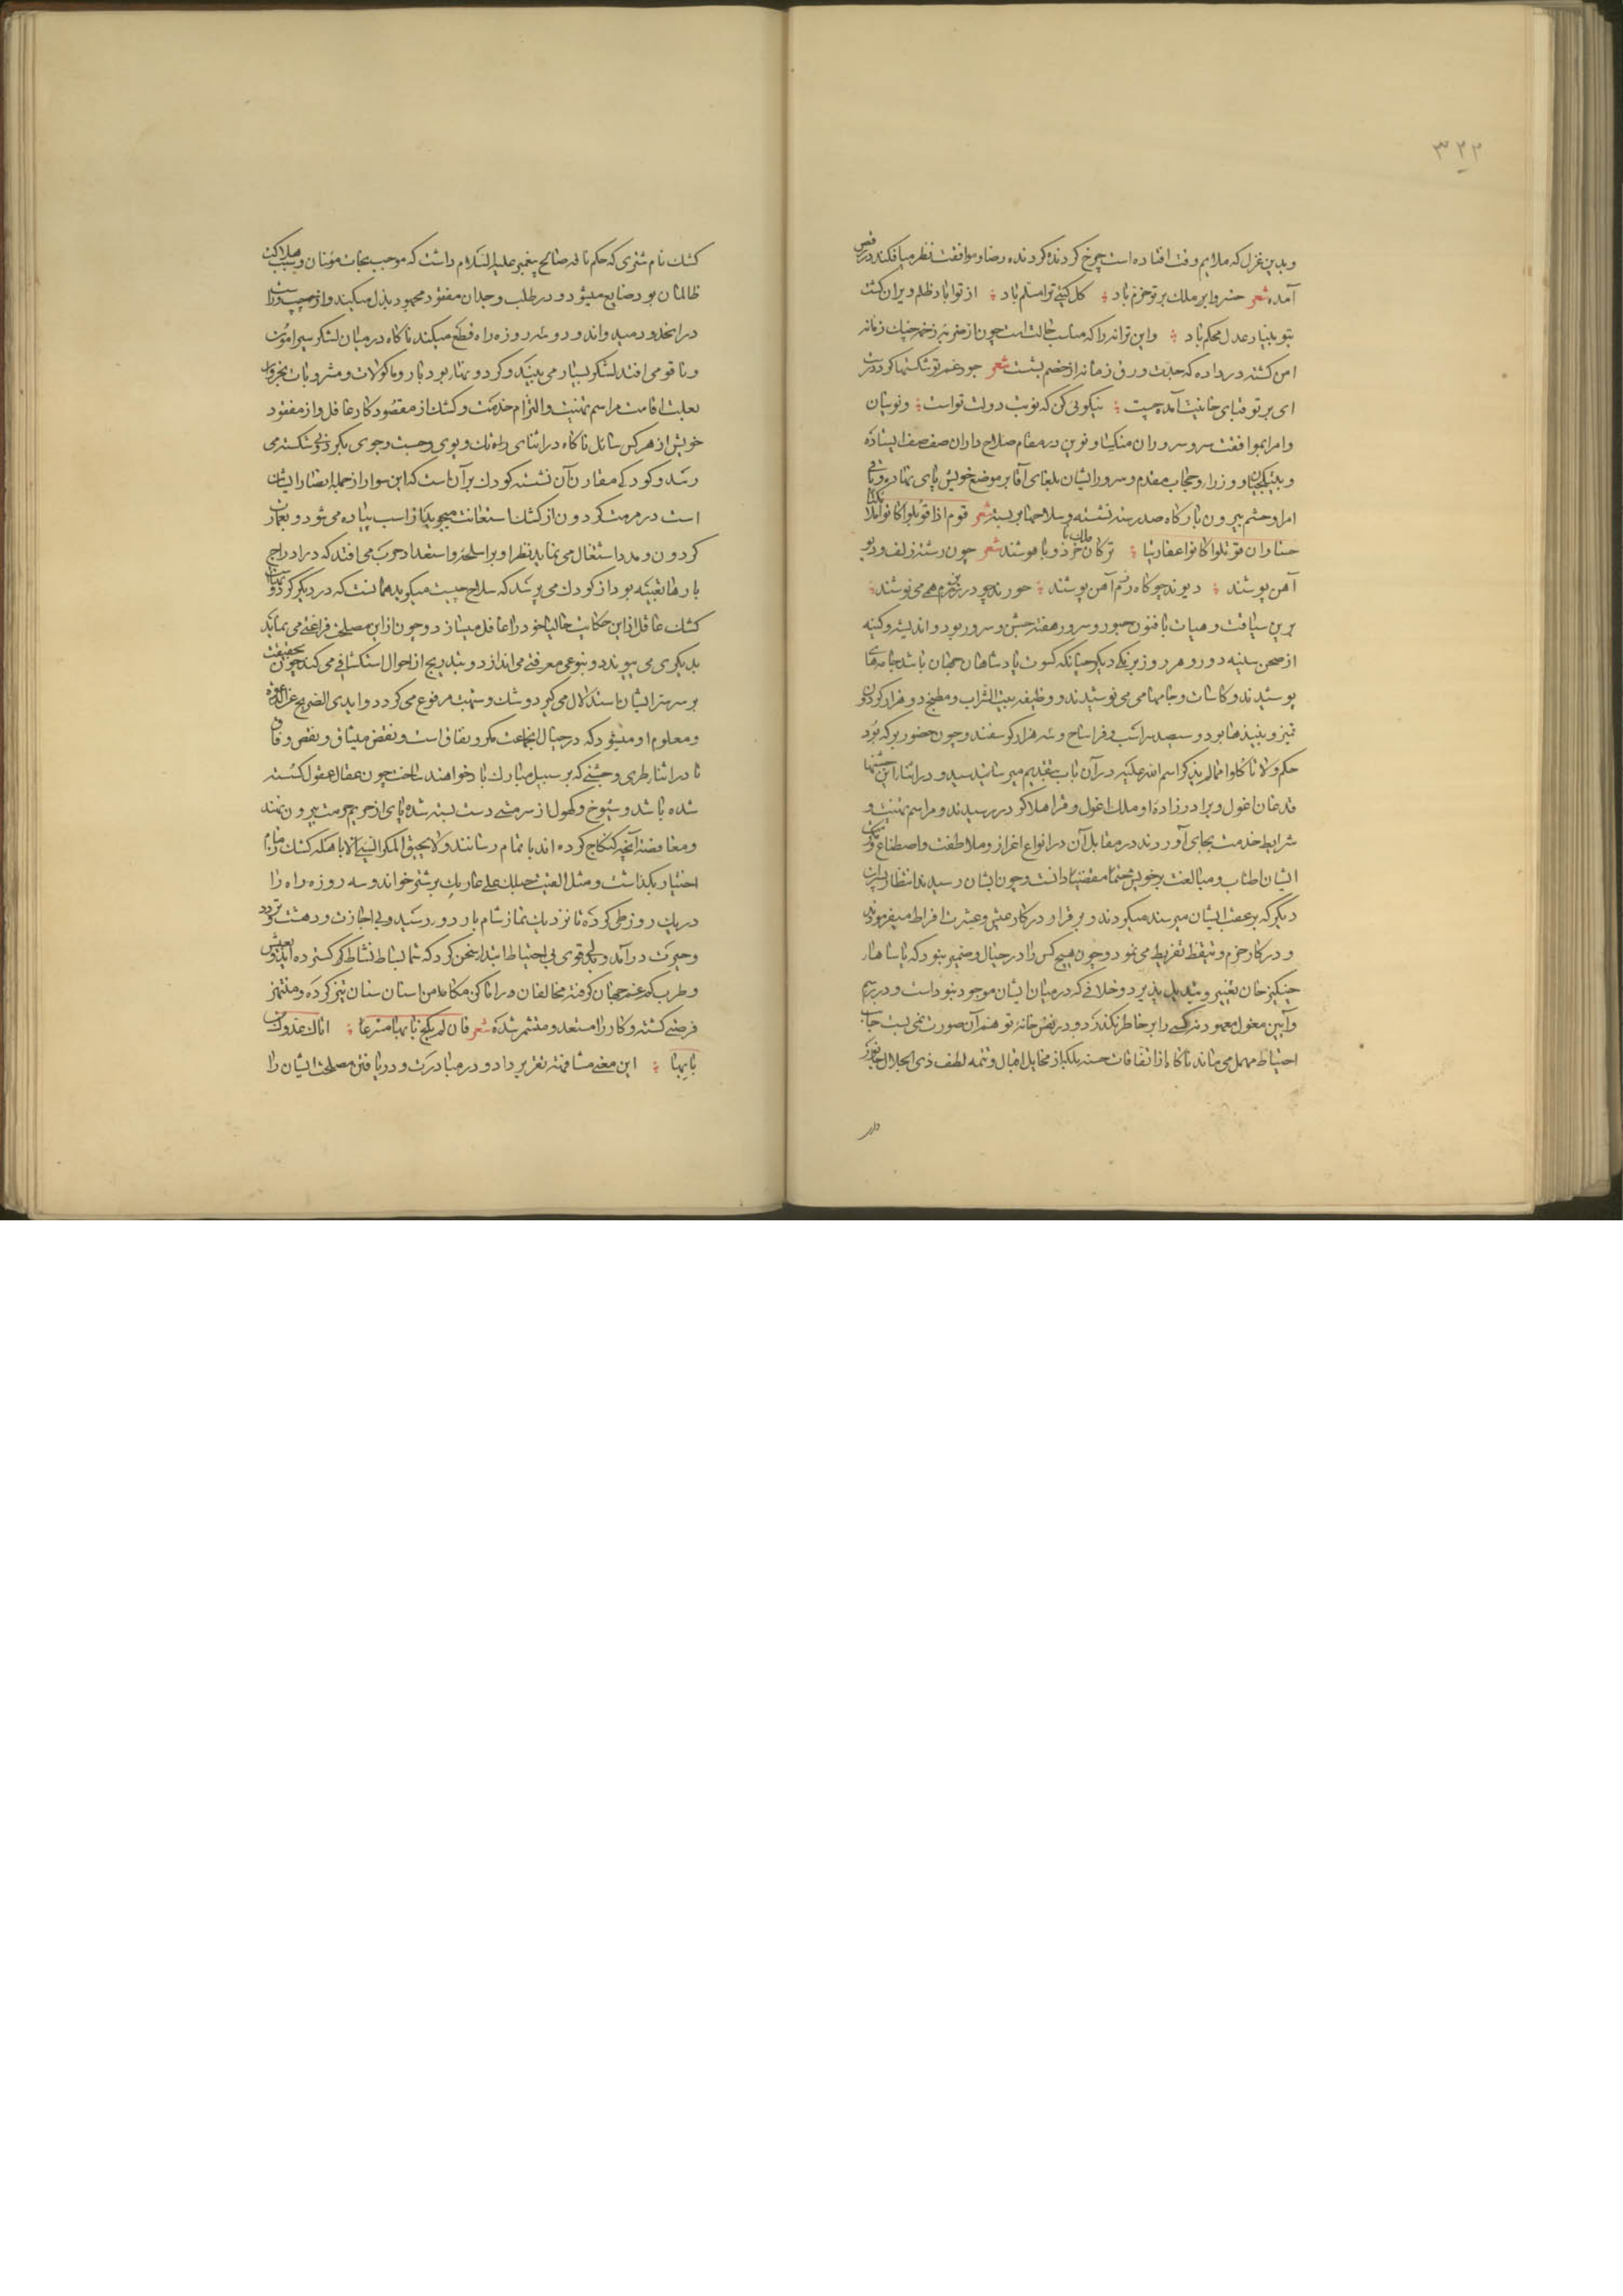 ۳۲۲
وبدین غزل که ملایم وقت افتاده است چرخ گردنده گردنده رضا و موافقت نظر میافکند در رقص
آمده شعر خسروا بر ملک بر تو خرم باد کل گیتی ترا مسلم باد از تو اباد ظلم ویران گشت
بتو بنیاد عدل محکم باد واین ترانه را که مناسب حالت است چون از هنر نبرد زخمه چنک زمانه
امن گشته در داده که جلت ورق زمانه از خصم بشست شعر جود غم تو شکستها کرد درست
ای بر تو قبای خانیت آمده چست نیکوئی کن که نوبت دولت تو است ونوینان
وامرا بموافقت سر وسروران منکسا ونوین در مقام صلاح داران صف صف ایستاده
وبیتکچیان ووزراء وحجاب مقدم وسرور ایشان بلغای آقا بر موضع خویش پای نهاده وباقی
امرا وحشم بیرون بارگاه صد رسته نشسته وسلاحها بر بسته شعر قوم اذا قوبلوا کانوا ملائکة
حسنا وان قوتلوا کانوا عفاریتا ترکان ملک با خرد و با هوشند شعر چون رشته زلف ودیو
آهن پوشند دیوند چو گاه رزم آهن پوشند حورند چو در بزم همی می نوشند
برین سیاقت وهیات بافنون حبور وسرور هفته جشن وسرور بود واندیشه وکینه
از صحن سینه دور وهر روز برنکی دیکر چنانکه کسوت پادشاهان جهان باشد جامهای
پوشیدند وکاسات وجامهاء می می نوشیدند ووظیفه بیت الشراب ومطبخ دو هزار گردون
قمیز ونبیذها بود وسیصد سر اسب وفراساح وسه هزار گوسفند وچون حضور برکه بود
حکم ولا تاکلوا مما لم یذکر اسم الله علیه در آن باب بتقدیم میرسانید وسید ودر اثناء این جشنها
قدغان اغول وبرادر زاده او ملک اغول وقرا هلاکو در رسیدند ومراسم تهنیت و
شرایط خدمت بجای آوردند در مقابل آن در انواع اعزاز وملاطفت واصطناع وتمکین
ایشان اطناب ومبالغت بر خویش حتما مقضیا دانست وچون ایشان رسیدند انتظار پسران
دیگر که بر عقب ایشان میرسند میکردند وبر قرار در کار عیش وعشرت افراط میفرمودند
ودر کار حزم وتیقظ تفریط می نمود وچون هیچ کس را در خیال وضمیر نبود که یاساهاء
چنگیز خان تغییر وتبدیل پذیرد وخلافی که در میان ایشان موجود نبوداست ودر رسم
وآیین مغول معهود نه کسی را بر خاطر نگذرد ودر نقش خانه توهم آن صورت نمی بست جانب
احتیاط مهمل می ماند ناگاه از اتفاقات حسنه بلکه از مخایل اقبال وتتمه لطف ذی الجلال جانور
کشک نام شتری که حکم ناقه صالح پیغمبر علیه السلام داشت که موجب نجات مؤمنان وسبب هلاکت
ظالمان بود ضایع میشود ودر طلب وجدان مفقود مجهود بذل میکند واز چپ وراست
در انحدود میدواند ودو سه روزه راه قطع میکند ناگاه در میان لشکر سیرامون
وناقو می افتد لشکر بسیار می بیند وگردونهاء پر بار وماکولات ومشروبات بخروار
بعلت اقامت مراسم تهنیت والتزام خدمت وکشک از مقصود کار غافل واز مفقود
خویش از هر کس سائل ناگاه در اثنای راه تک وپوی وجست وجوی بگردونی شکسته می
رسد وکودکی مقارن آن نشسته کودک بر آن است که این سوار از جمله انصار ایشان
است در مرمت گردون از کشک استعانت میجوید او از اسب پیاده می شود وبعمارت
گردون ومدد اشتغال می نماید نظر او بر اسلحه واستعداد حرب می افتد که در ادراج
بارها تعبیه بود از کودک می پرسد که سلاح چیست میگوید همانست که در دیگر گردونهاست
کشک عاقل ازین حکایت حالیا خود را غافل میسازد وچون ازین مصلحت فراغتی می نماید
بدیگری می پیوندد وبنوعی معرفتی می اندازد وبتدریج از احوال استکشافی می کند چون بحقیقت
بر سر سر ایشان استدلال می گیرد وشک وشبهت مرفوع می گردد وابدی الصریح عن الرغوة
ومعلوم او میشود که در خیال انجماعت مکر ونفاق است ونقض میثاق ونقص وفاق
تا در اثناء طوی وجشنی که بر سبیل مبارک باد خواهند ساخت چون عقال عقول گسسته
شده باشد وشیوخ وکهول از سر مستی دست بسته شده پای از حریم حرمت بیرون نهند
ومغافصة آنچه کنکاج کرده اند باتمام رسانند ولا یحیق المکر السیئ الا باهله کشک زمام
اختیار بگذاشت ومثل القیت حبلک علی غاربک بر شتر خواند وسه روزه راه را
در یک روز طی کرده تا نزدیک نماز شام باردو رسید وبی اجازت ودهشت وتردد
وحیرت در آمد وبدلی قوی بی احتیاط ابتداء سخن کرد که شما بساط نشاط گسترده اید وبعیش
وطرب کم غم جهان گرفته مخالفان در اماکن مکامن اسنان سنان تیز کرده ومنتهز
فرصتی گشته وکار را مستعد ومتشمر شده شعر فان لم تکج بابها مسرعا اتاک عدوک من
بابها این معنی مشافهة تقریر داد ودر مبادرت ودر یافتن مصلحت ایشان را